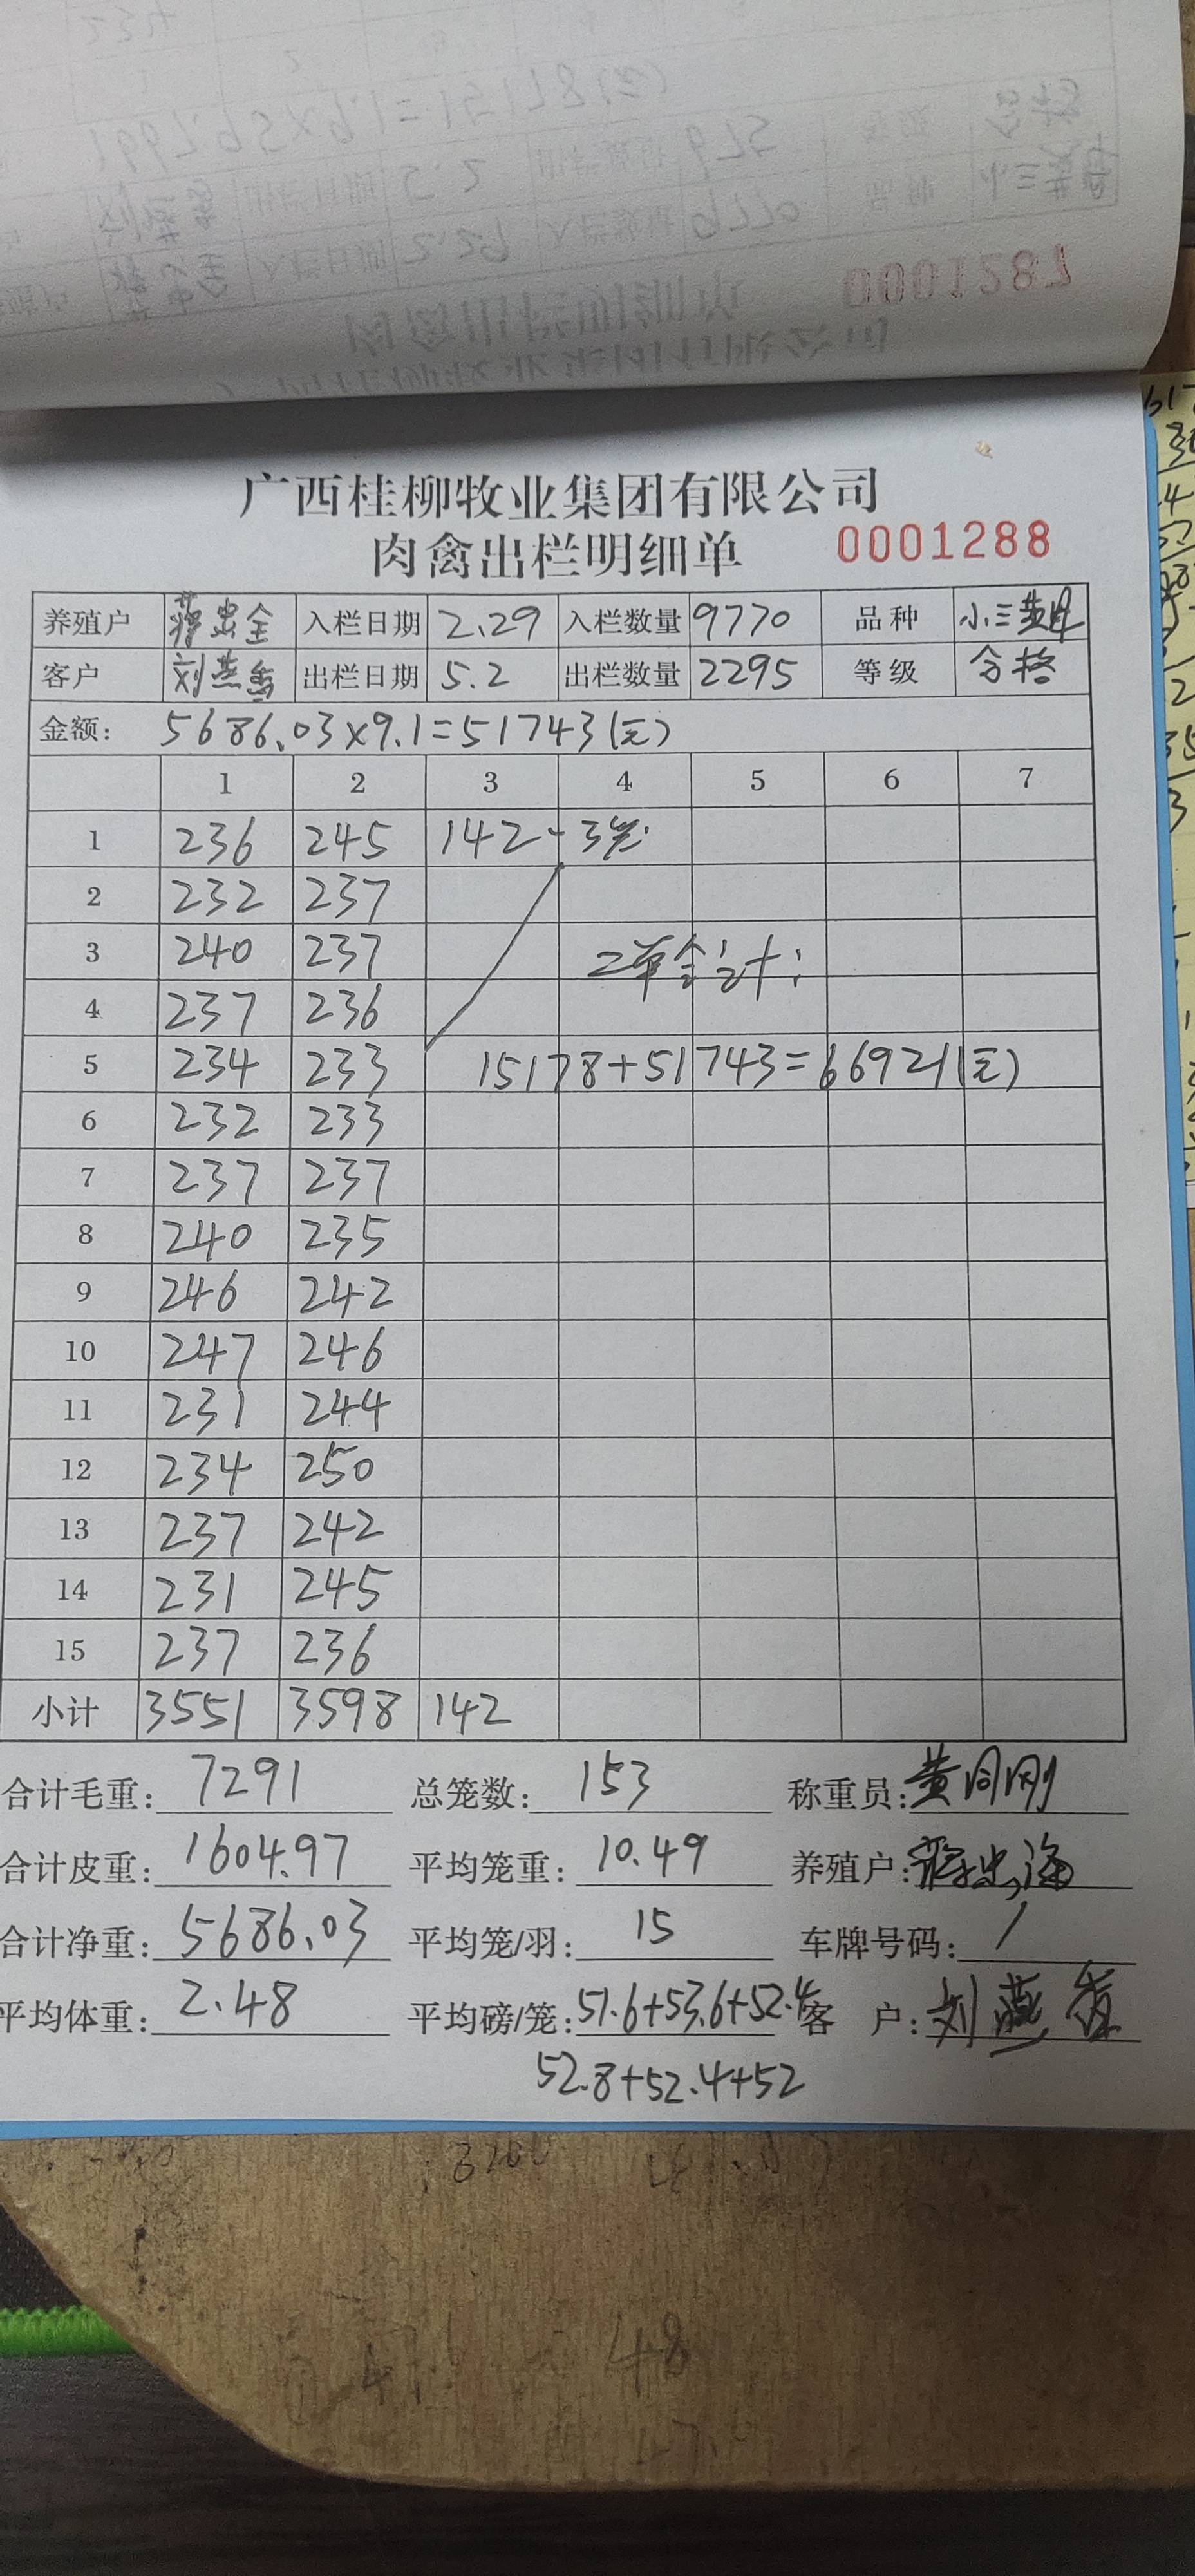 0001287
广西桂柳牧业集团有限公司
肉禽出栏明细单 0001288
养殖户 出全 入栏日期 2.29 入栏数量 9770 品种 小三黄母
客户 刘燕香 出栏日期 5.2 出栏数量 2295 等级 合格
金额: 5686.03×9.1=51743(元)
1 2 3 4 5 6 7
1 236 245 142-3笼
2 232 237
3 240 237 二单合计:
4 237 236
5 234 233 15178+51743=66921(元)
6 232 233
7 237 237
8 240 235
9 246 242
10 247 246
11 231 244
12 234 250
13 237 242
14 231 245
15 237 236
小计 3551 3598 142
合计毛重: 7291 总笼数: 153 称重员: 黄同刚
合计皮重: 1604.97 平均笼重: 10.49 养殖户: 出海
合计净重: 5686.03 平均笼/羽: 15 车牌号码: /
平均体重: 2.48 平均磅/笼: 51.6+53.6+52.4 客 户: 刘燕香
52.8+52.4+52